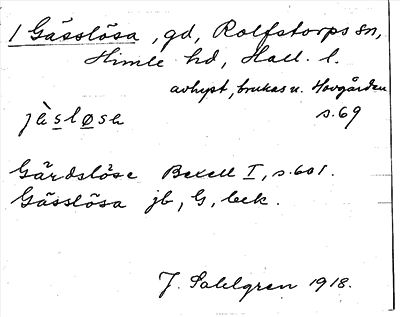 1 Gässlösa, gd, Rolfstorps sn,
Himle hd, Hall. l.
avhyst, brukas u. Hovgården
s. 69
jä̀sløsa
Gärdslöse Bexell I, s. 601.
Gässlösa jb, G, bek.
J. Sahlgren 1918.